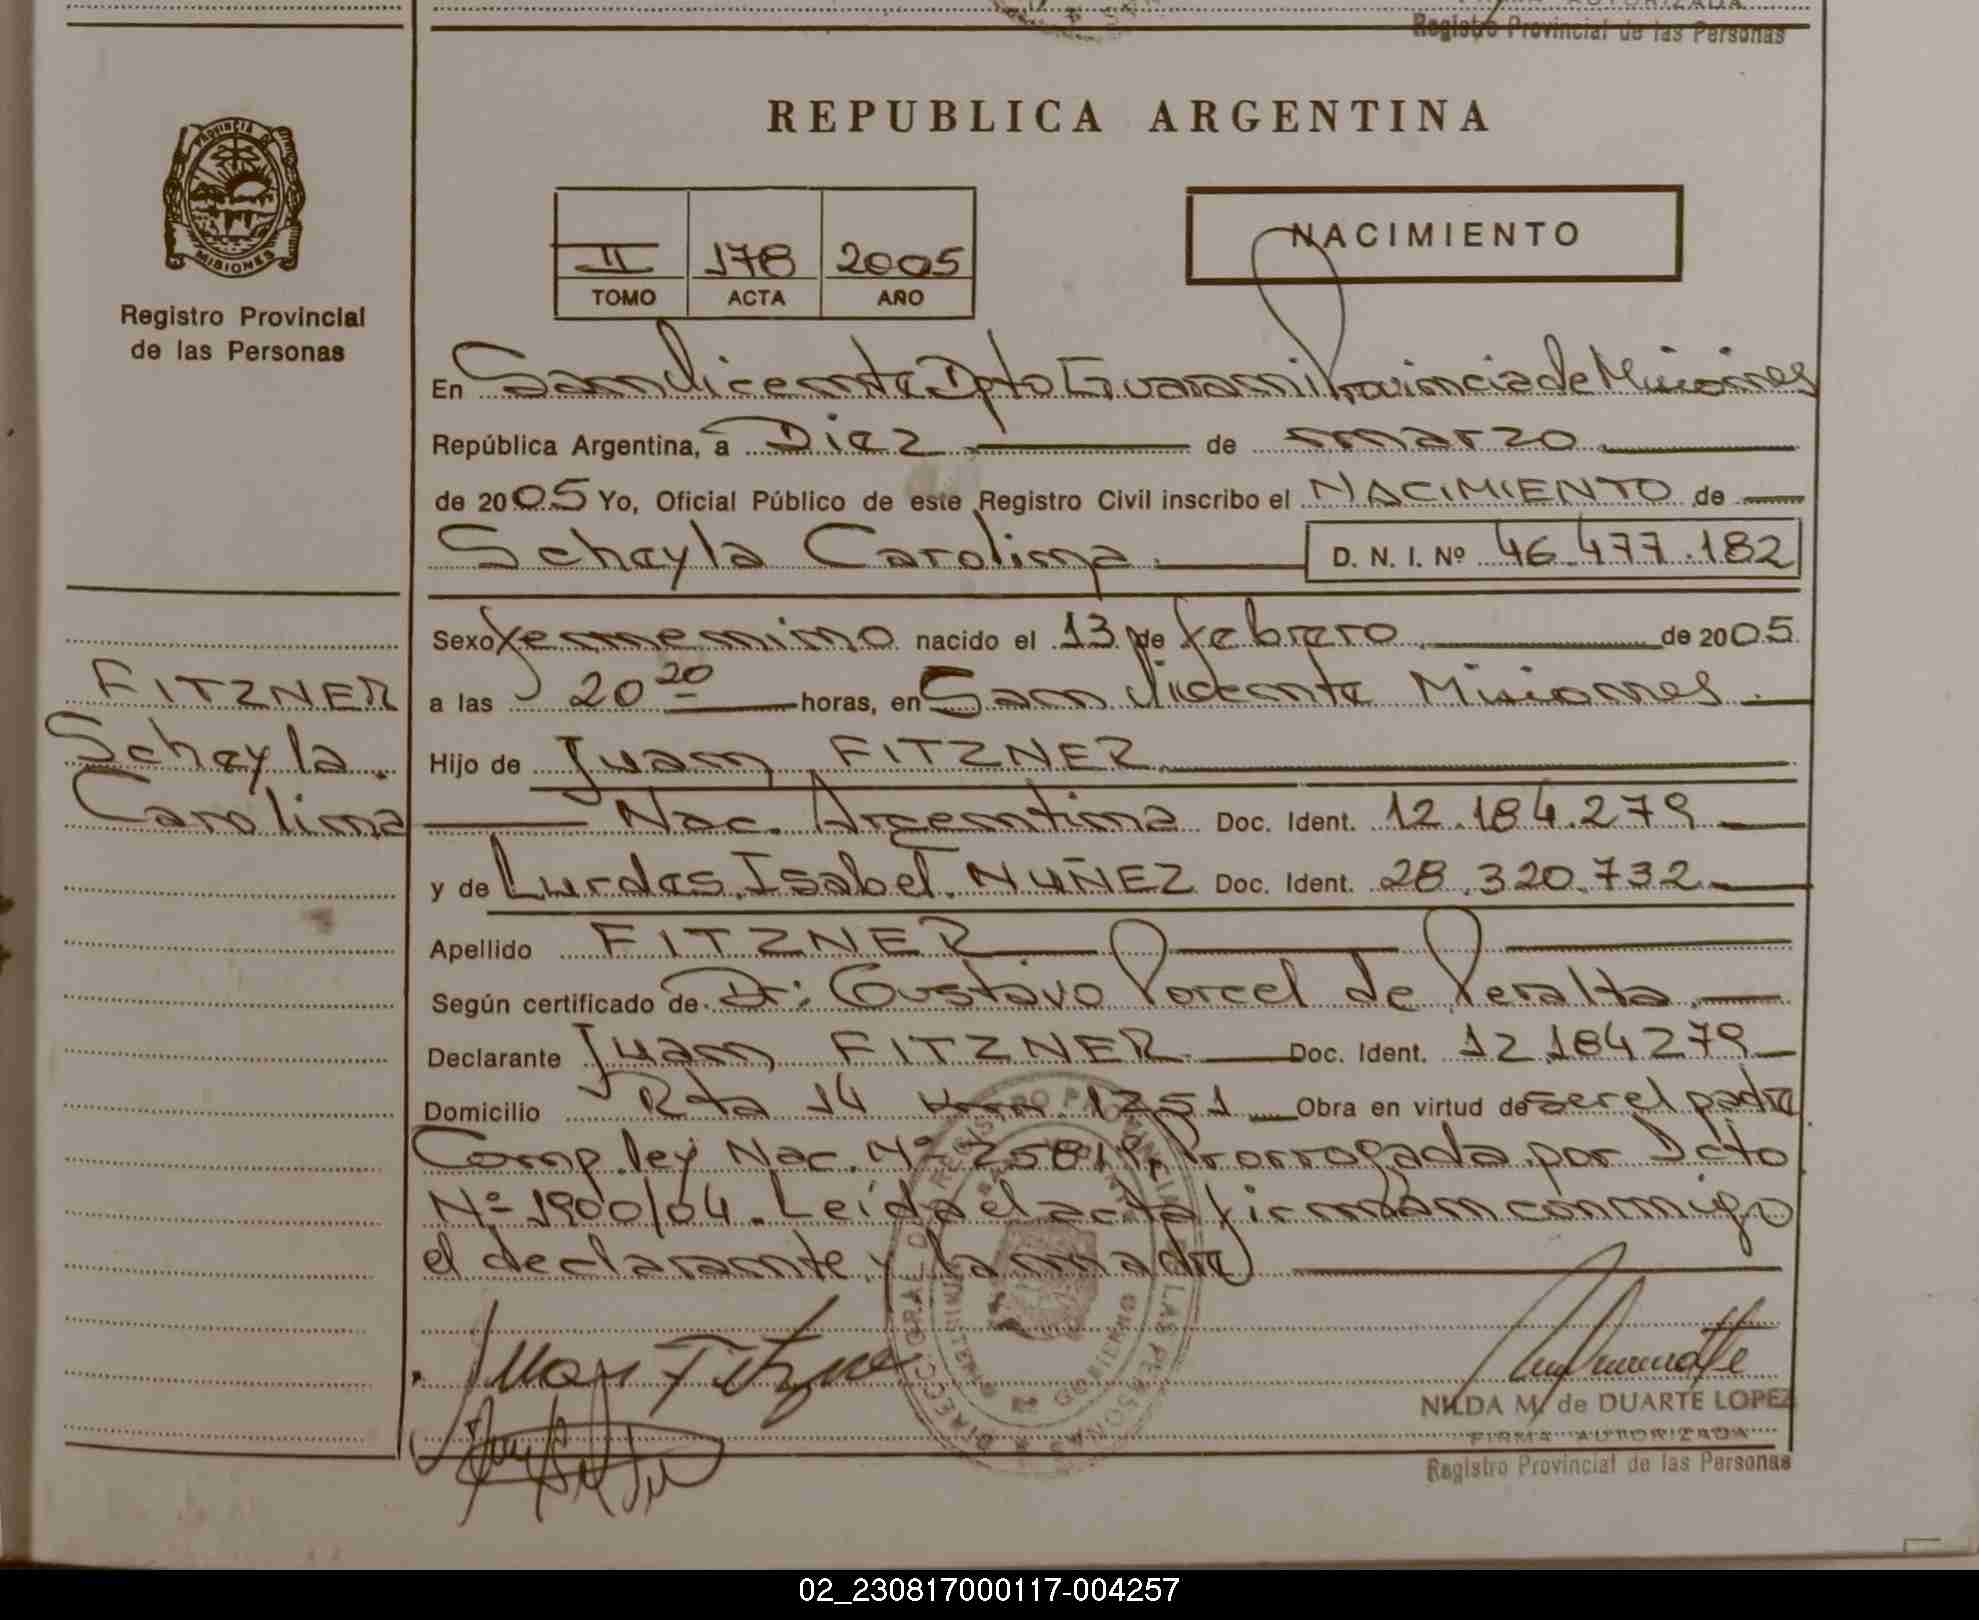 FIRMA AUTORIZADA
Registro Provincial de las Personas
REPUBLICA ARGENTINA
PROVINCIA DE
MISIONES
Registro Provincial
de las Personas
II 178 2005
TOMO ACTA AÑO
NACIMIENTO
En San Vicente Dpto Guarani Provincia de Misiones
República Argentina, a Diez de marzo
de 2005 Yo, Oficial Público de este Registro Civil inscribo el NACIMIENTO de
Scheyla Carolina D. N. I. Nº 46.477.182
Sexo femenino nacido el 13 de febrero de 2005
a las 20 20 horas, en San Vicente Misiones
FITZNER
Scheyla
Carolina
Hijo de Juan FITZNER
Nac. Argentina Doc. Ident. 12.184.279
y de Lurdes Isabel NUÑEZ Doc. Ident. 28.320.732
Apellido FITZNER
Según certificado de Dr: Gustavo Porcel de Peralta
Declarante Juan FITZNER Doc. Ident. 12.184279
Domicilio Rta 14 Km 1251 Obra en virtud de ser el padre
Comp. ley Nac. Nº 25819. Prorrogada por Dcto
Nº 1900/04. Leída el acta firman conmigo
el declarante y la madre
Juan Fitzner
DIRECC. GRAL. DEL REGISTRO PROVINCIAL DE LAS PERSONAS
MINISTERIO DE GOBIERNO
NILDA M. de DUARTE LOPEZ
FIRMA AUTORIZADA
Registro Provincial de las Personas
02_230817000117-004257